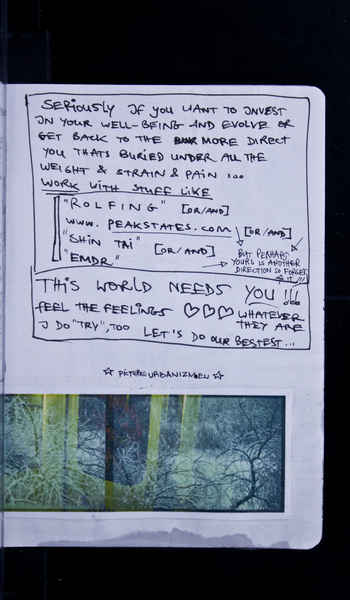 SERIOUSLY IF YOU WANT TO INVEST
IN YOUR WELL-BEING AND EVOLVE OR
GET BACK TO THE MORE DIRECT
YOU THATS BURIED UNDER ALL THE
WEIGHT & STRAIN & PAIN ...
WORK WITH STUFF LIKE
"ROLFING" [OR/AND]
WWW. PEAKSTATES.COM [OR/AND]
"SHIN TAI" [OR/AND]
"EMDR"
BUT PERHAPS
YOURS IS ANOTHER
DIRECTION SO FORGET
IT!!!
THIS WORLD NEEDS YOU!!!
FEEL THE FEELINGS ♡♡♡ WHATEVER
THEY ARE
I DO "TRY", TOO LET'S DO OUR BESTEST...